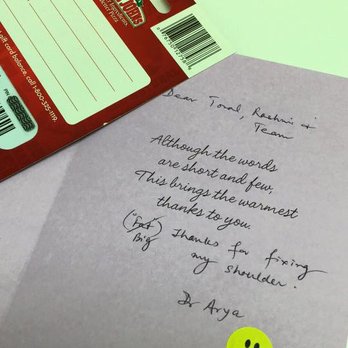 gift card balance, call 1-800-325-1119.
Dear Toral, Rashmi &
Team
Although the words
are short and few,
This brings the warmest
thanks to you.
Thanks for fixing
Big
my shoulder.
Dr Arya